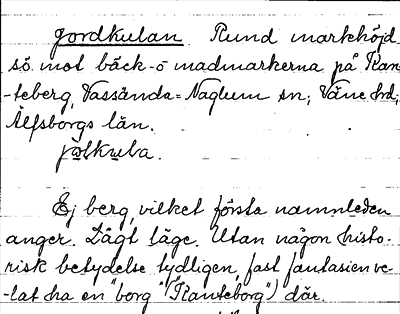 Jordkulan. Rund markhöjd
sö mot bäck- o madmarkerna på Ran-
-teberg, Vassända-Naglum sn; Väne hd,
Älfsborgs län.
Ej berg, vilket första namnleden
anger. Lågt läge. Utan någon histo-
risk betydelse tydligen, fast fantasien ve-
-lat ha en "borg" ("Ranteborg") där.